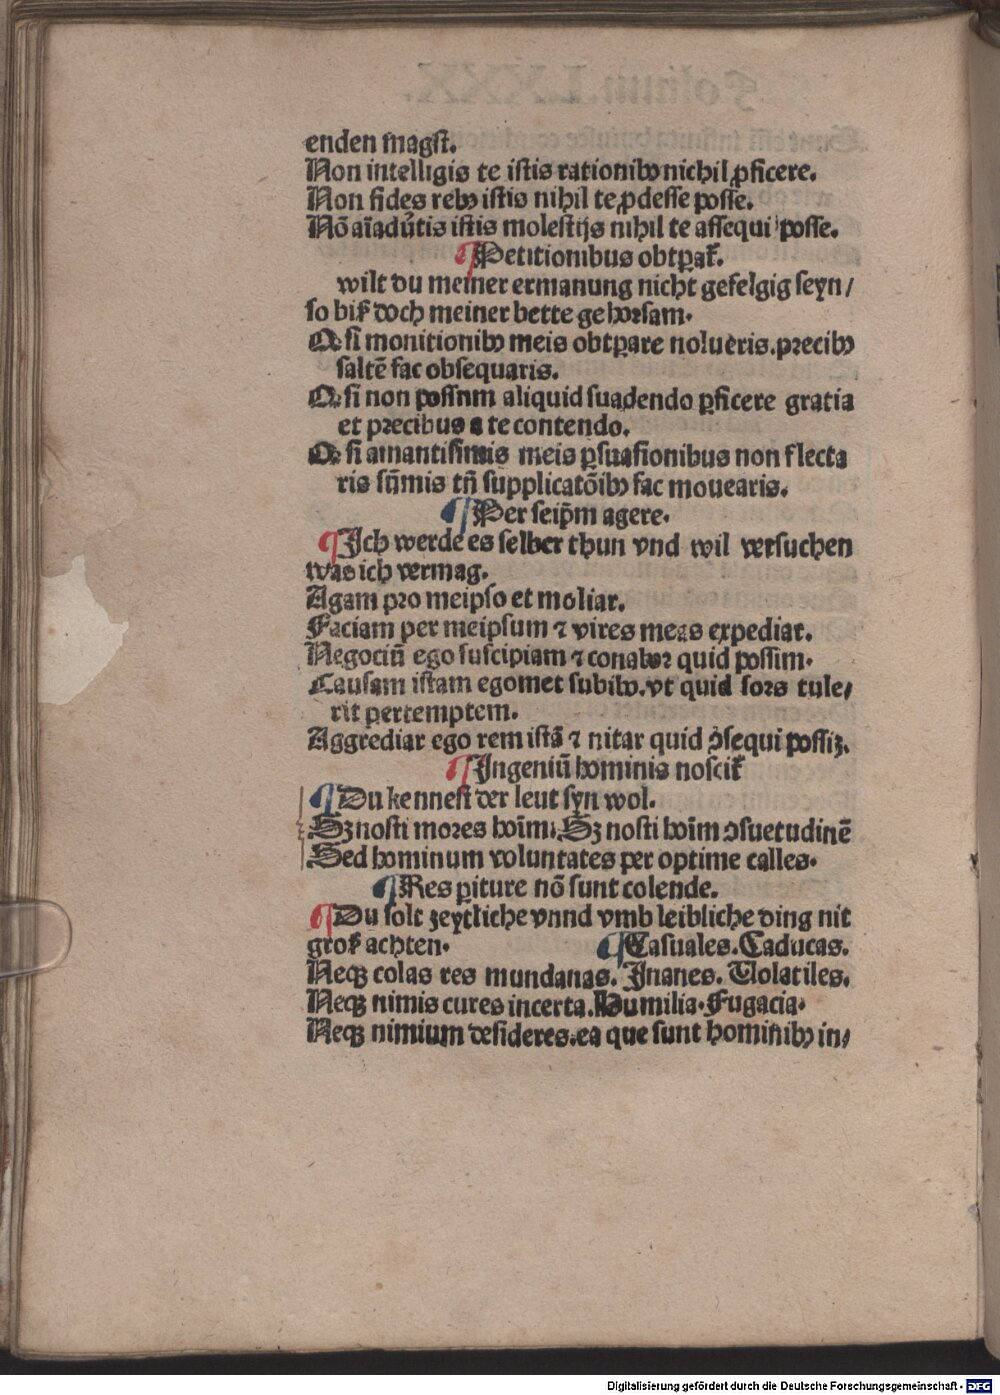 enden magst.
Non intelligis te istis rationibꝰ nichil ꝓficere.
Non fides rebꝰ istis nihil te ꝓdesse posse.
Nō aīaduͤtis istis molestijs nihil te assequi posse.
¶ Petitionibus obtꝑat᷑.
wilt du meiner ermanung nicht gefelgig seyn/
so biß doch meiner bette gehorsam.
Q si monitionibꝰ meis obtꝑare nolueris. precibꝰ
saltē fac obsequaris.
Q si non possum aliquid suadendo ꝑficere gratia
et precibus a te contendo.
Q si amantissimis meis ꝑsuasionibus non flecta
ris sūmis tñ supplicatōibꝰ fac mouearis.
¶ Per seip̄m agere.
¶ Ich werde es selber thun vnd wil versuchen
was ich vermag.
Agam pro meipso et moliar.
Faciam per meipsum ⁊ vires meas expediar.
Negociū ego suscipiam ⁊ conabor quid possim.
Causam istam egomet subibo. vt quid sors tule/
rit pertemptem.
Aggrediar ego rem istā ⁊ nitar quid ꝯsequi possiꝫ.
¶ Ingeniū hominis noscit᷑
¶ Du kennest der leut syn wol.
Sꝫ nosti mores hoīm. Sꝫ nosti hoīm ꝯsuetudinē
Sed hominum voluntates per optime calles.
¶ Res ꝑiture nō sunt colende.
¶ Du solt zeytliche vnnd vmb leibliche ding nit
groß achten. ¶ Casuales. Caducas.
Neqꝫ colas res mundanas. Inanes. Volatiles.
Neqꝫ nimis cures incerta. Humilia. Fugacia.
Neqꝫ nimium desideres. ea que sunt hominibꝰ in/
Folium. LXXX.
Digitalisierung gefördert durch die Deutsche Forschungsgemeinschaft - DFG